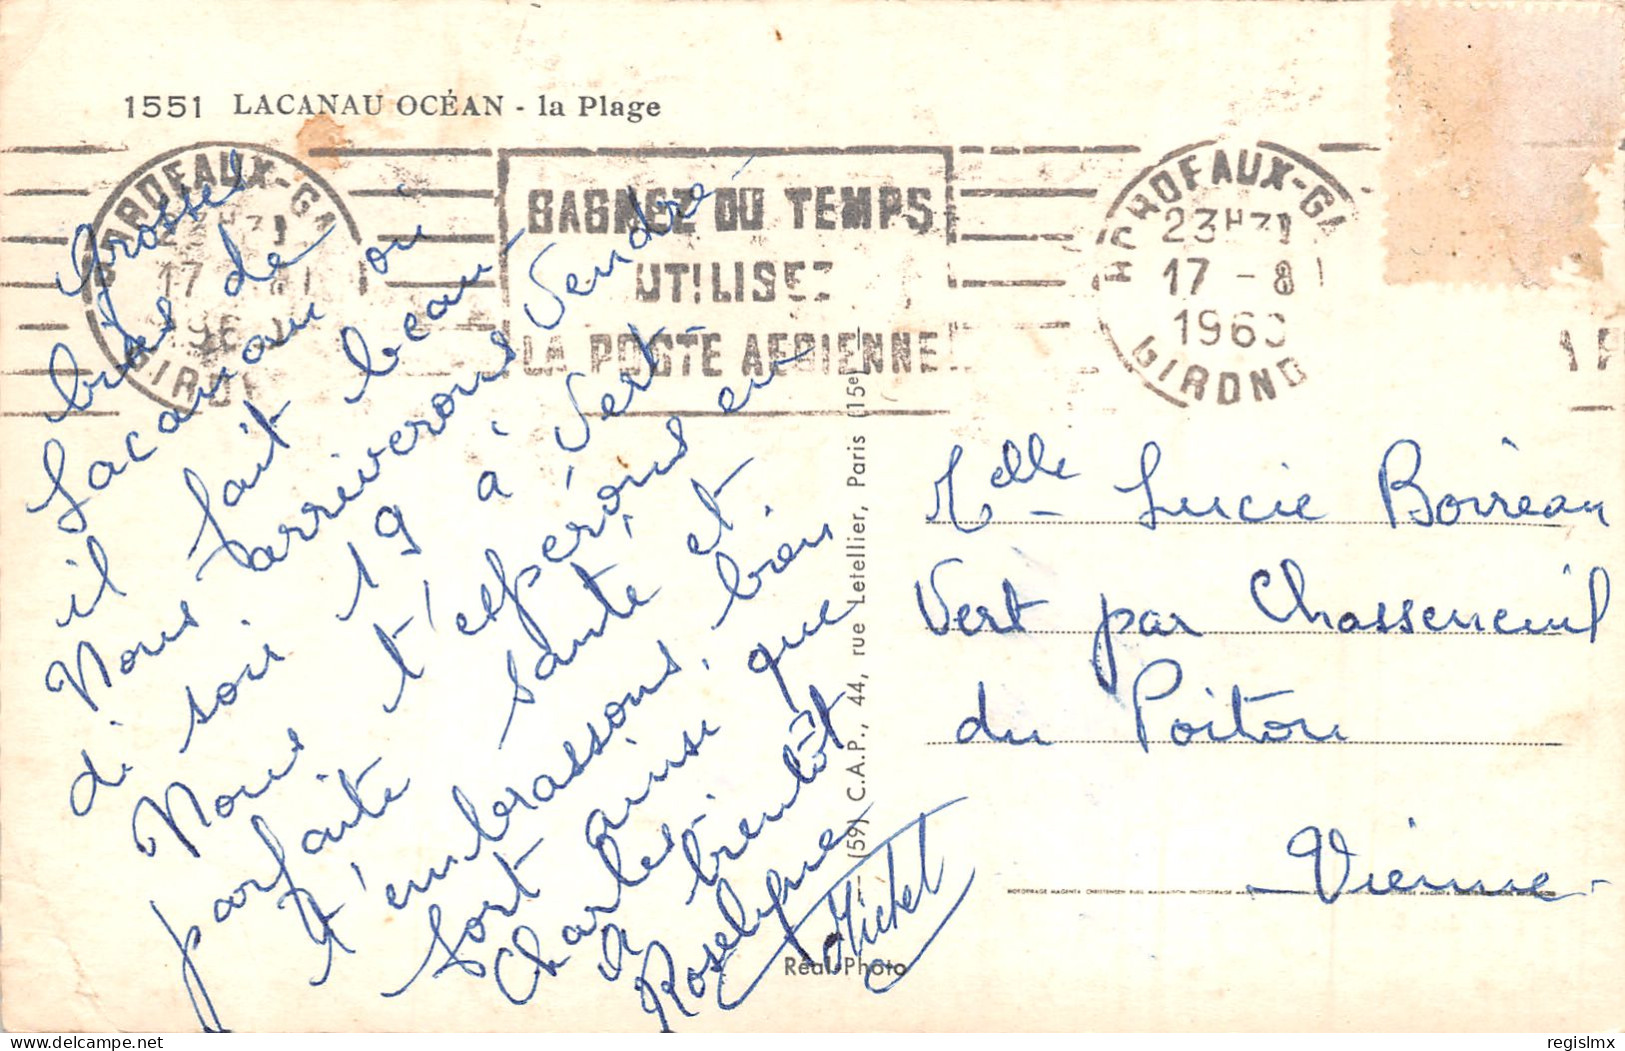 1551 LACANAU OCÉAN - la Plage
BORDEAUX-GA
23H31
17 -8
196
GIRON
GAGNEZ DU TEMPS
UTILISEZ
LA POSTE AERIENNE
BORDEAUX-GA
23H31
17 -8
1960
GIROND
Grosses
bises de
Lacanau où
il fait beau
Nous arriverons Vendre-
di soir 19 à Vert.
Nous t'espérons en
parfaite santé et
t'embrassons bien
fort ainsi que
Charles.
a bientôt
Roselyne
Michel
Melle Lucie Boireau
Vert par Chasseneuil
du Poitou
Vienne
(59) C.A.P., 44, rue Letellier, Paris (15e)
Réal-Photo
regislmx